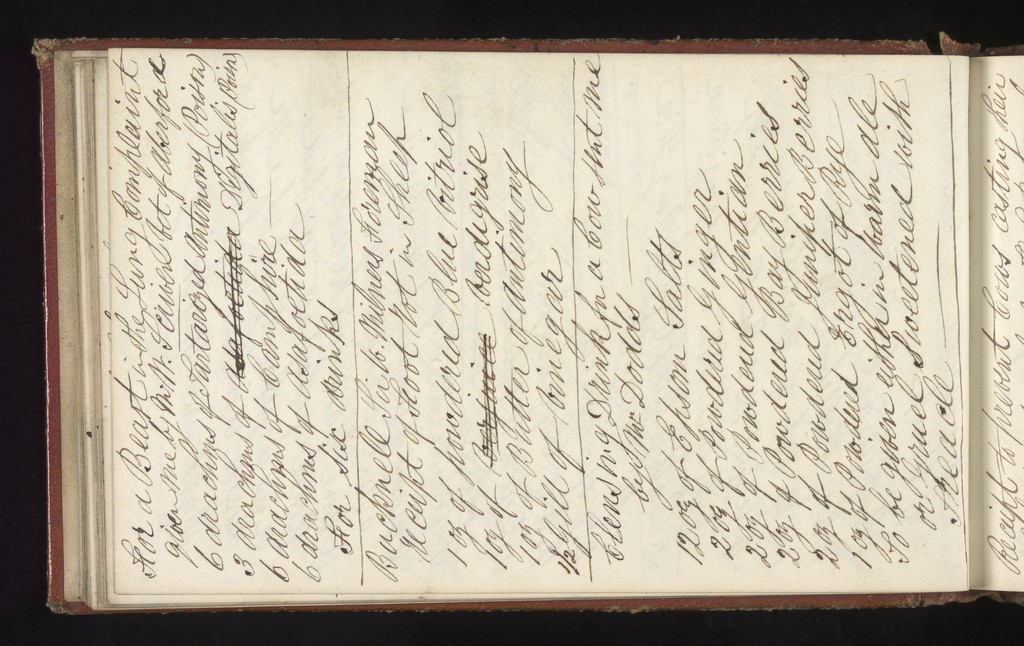 For a Beast in the Lung Complaint
given me by Mr W. Scriven Vet of Aleford
6 drachms of Tartarized Antimony (Poison)
3 drachms of Digitalis (Poison)
6 drachms of Camphire
6 drachms of Asafoetida
For Six drinks
Bucknell Sir G. Philips Herdman
Receipt of Foot Rot in Sheep
1 oz of powdered Blue Vitriol
1 oz of Verdigrise
1 oz of Butter of Antimony
1/2 gill of Vinegar
Clensing Drink for a Cow sent me
by Mr Dodds
12 oz of Epsom Salts
2 oz of Powdered Ginger
2 oz of Powdered Gentian
2 oz of Powdered Bay Berries
2 oz of Powdered Juniper Berries
1 oz of Powdered Ergot of Rye
To be given either in warm ale
or Gruel Sweetened with
Treacle
Receipt to prevent Cows casting their